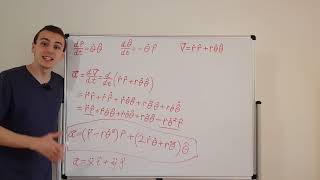 dr̂/dt = θ̇θ̂    dθ̂/dt = -θ̇r̂    v⃗ = ṙr̂ + rθ̇θ̂
a⃗ = dv⃗/dt = d/dt (ṙr̂ + rθ̇θ̂)
= r̈r̂ + ṙr̂̇ + ṙθ̇θ̂ + rθ̈θ̂ + rθ̇θ̂̇
= r̈r̂ + ṙθ̇θ̂ + ṙθ̇θ̂ + rθ̈θ̂ - rθ̇²r̂
a⃗ = (r̈ - rθ̇²)r̂ + (2ṙθ̇ + rθ̈)θ̂
a⃗ = ẍî + ÿĵ